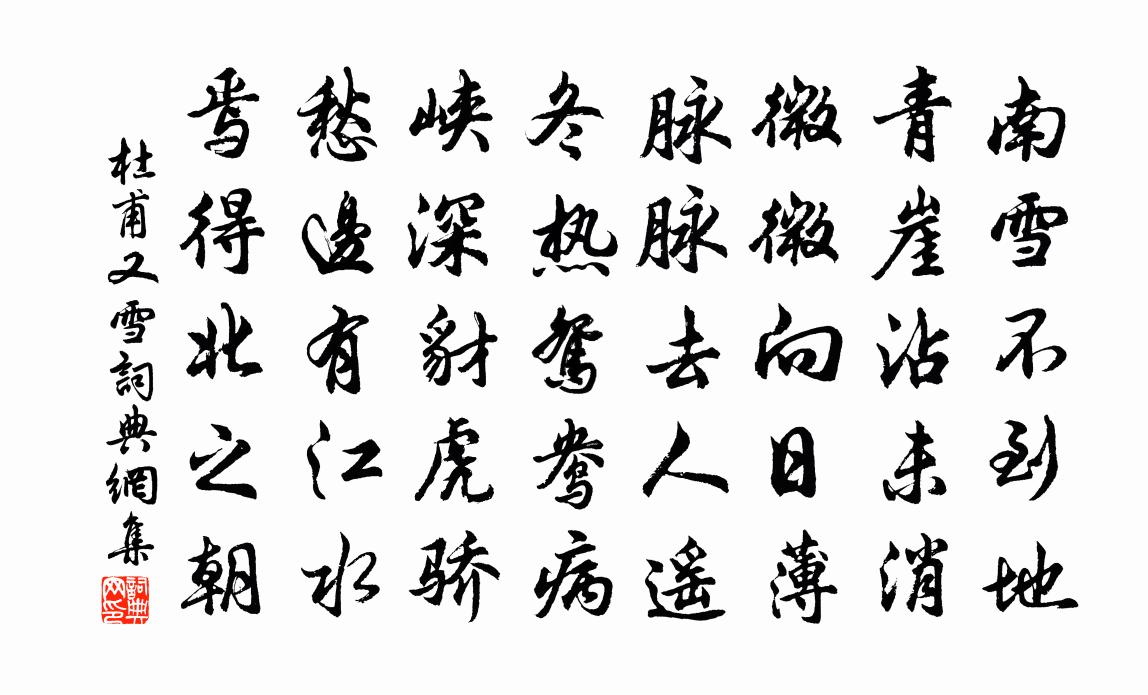 南雪不到地
青崖沾未消
微微向日薄
脉脉去人遥
冬热鸳鸯病
峡深豺虎骄
愁邊有江水
焉得北之朝
杜甫又雪詞典網集
詞典網印